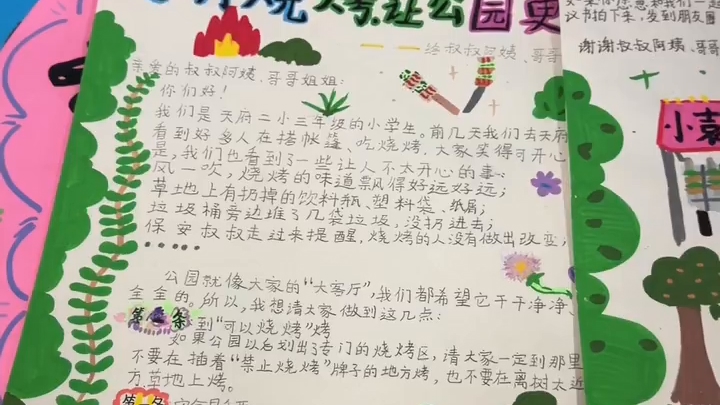 烧烤，让公园更
给叔叔阿姨、哥哥
亲爱的叔叔阿姨、哥哥姐姐：
你们好！
我们是天府二小三年级的小学生。前几天我们去天府
看到好多人在搭帐篷、吃烧烤，大家笑得可开心
是，我们也看到了一些让人不太开心的事：
风一吹，烧烤的味道飘得好远好远；
草地上有扔掉的饮料瓶、塑料袋、纸屑；
垃圾桶旁边堆了几袋垃圾，没扔进去；
保安叔叔走过来提醒，烧烤的人没有做出改变；
······
公园就像大家的“大客厅”，我们都希望它干干净净、
全全的。所以，我想请大家做到这几点：
第一条 到“可以烧烤”烤
如果公园以后划出了专门的烧烤区，请大家一定到那里
不要在插着“禁止烧烤”牌子的地方烤，也不要在离树太近
方草地上烤。
议书拍下来，发到朋友圈
谢谢叔叔阿姨、哥哥
小袁